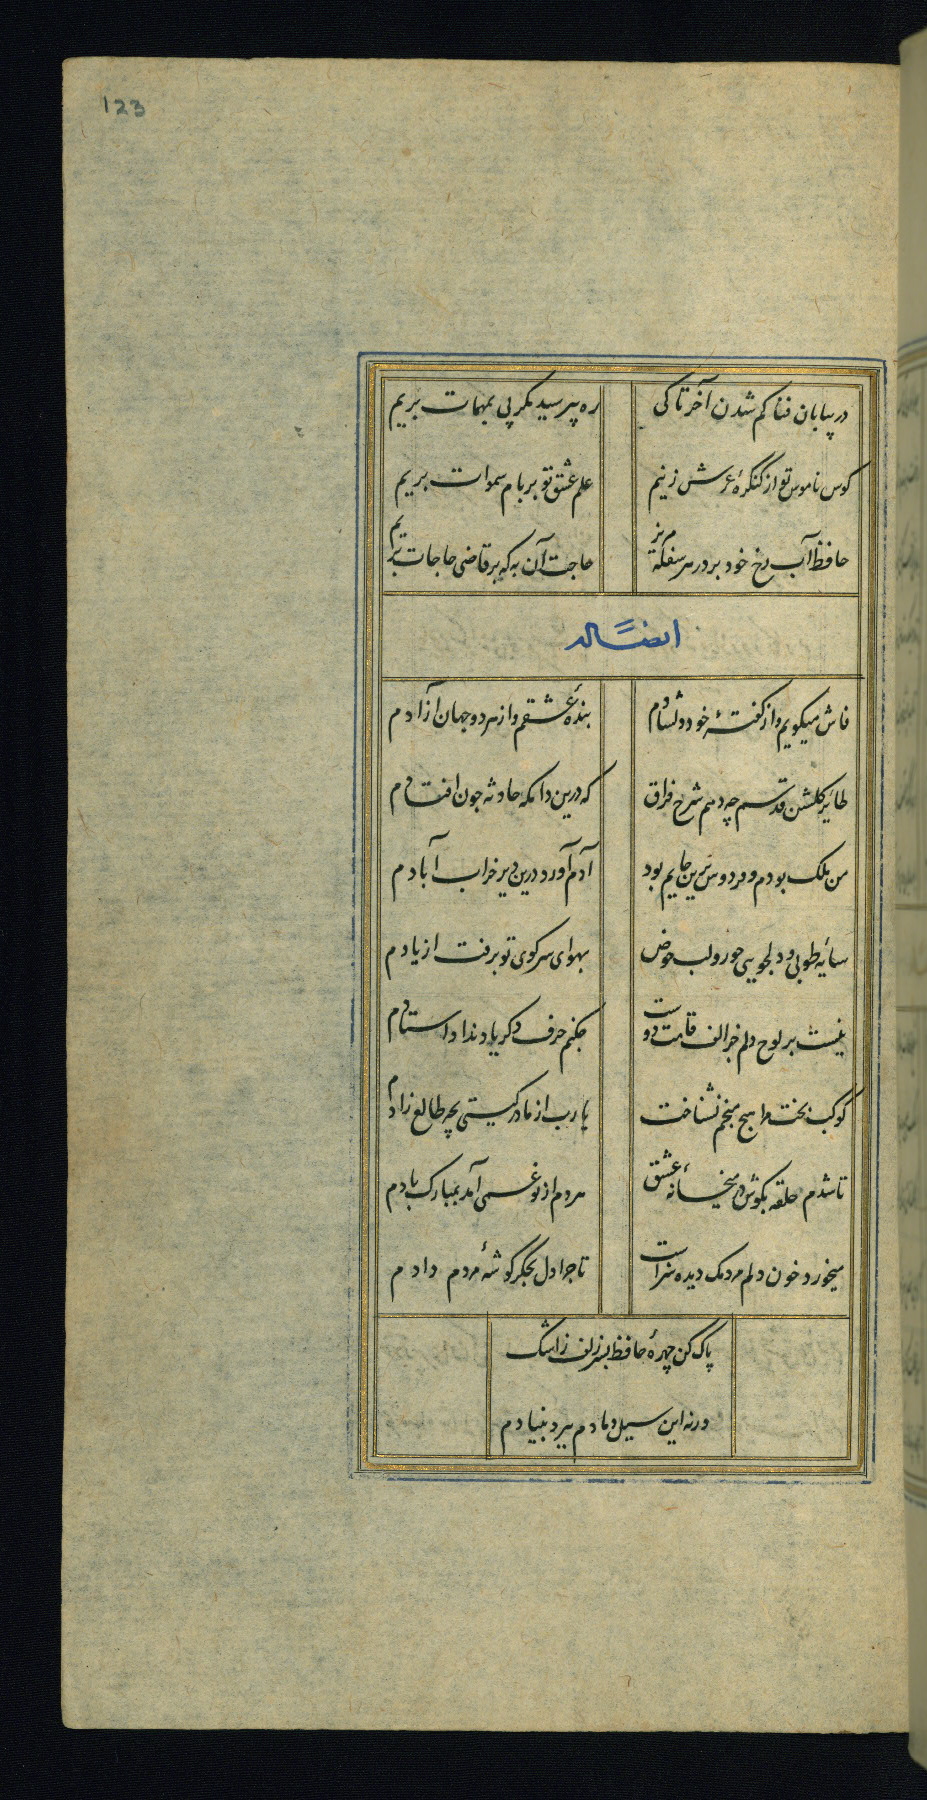 123
در بیابان فنا کم شدن آخر تا کی
ره بپرسید مکر پی بمهمات بریم
کوس ناموس تو از کنکرهٔ عرش زنیم
علم عشق تو بر بام سموات بریم
حافظ آب رخ خود بر در هر سفله مریز
حاجت آن به که بر قاضی حاجات بریم
ایضاً له
فاش میکویم و از کفتهٔ خود دلشادم
بندهٔ عشقم و از هر دو جهان آزادم
طائر کلشن قدسم چه دهم شرح فراق
که درین دامکه حادثه چون افتادم
من ملک بودم و فردوس برین جایم بود
آدم آورد درین دیر خراب آبادم
سایهٔ طوبی و دلجویی حور و لب حوض
بهوای سر کوی تو برفت از یادم
نیست بر لوح دلم جز الف قامت دوست
چکنم حرف دکر یاد نداد استادم
کوکب بخت مرا هیچ منجم نشناخت
یا رب از مادر کیتی بچه طالع زادم
تا شدم حلقه بکوش در میخانهٔ عشق
هر دم از نو غمی آمد بمبارک بادم
میخورد خون دلم مردمک دیده سزاست
تا چرا دل بجکر کوشهٔ مردم دادم
پاک کن چهرهٔ حافظ بسر زلف ز اشک
ورنه این سیل دمادم ببرد بنیادم